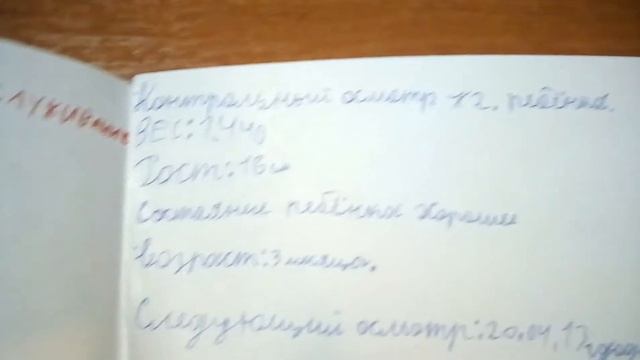 Контрольный осмотр №2. ребёнка.
ВЕС: 1,440
Рост: 18 см
Состояние ребёнка хорошее
Возраст: 3 месяца.
Следующий осмотр: 20.04.17